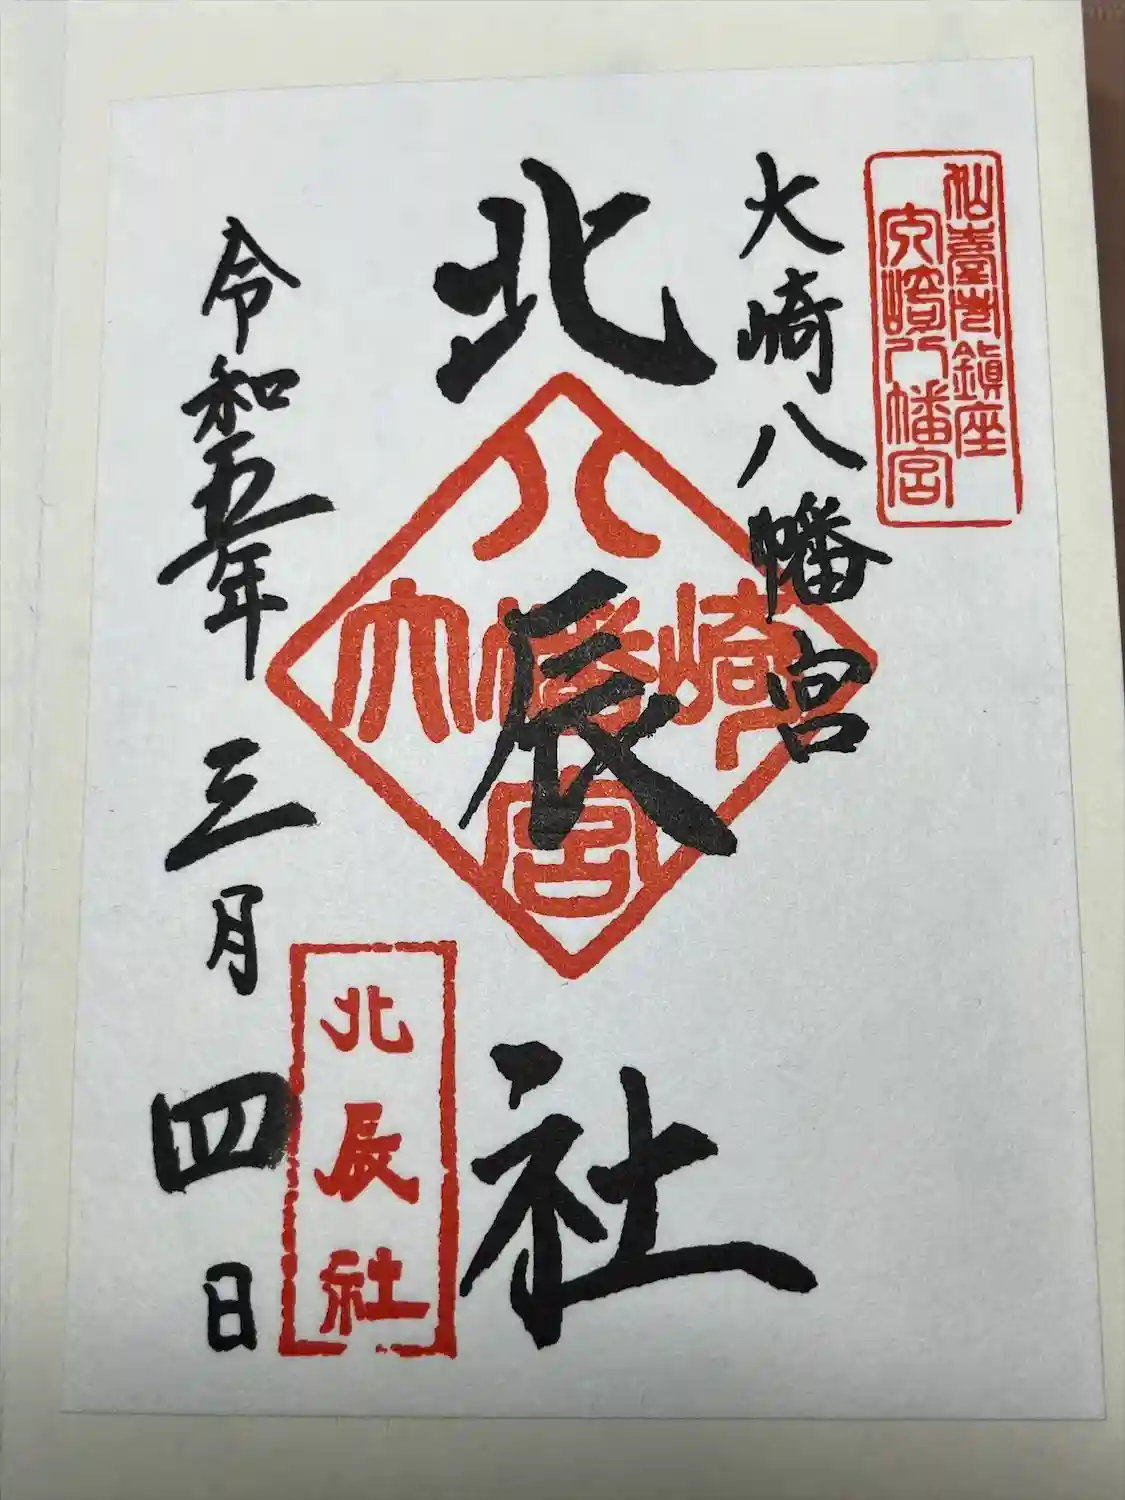 仙臺市鎮座
大崎八幡宮
大崎八幡宮
北辰社
八
大幡崎
宮
北辰社
令和五年三月四日